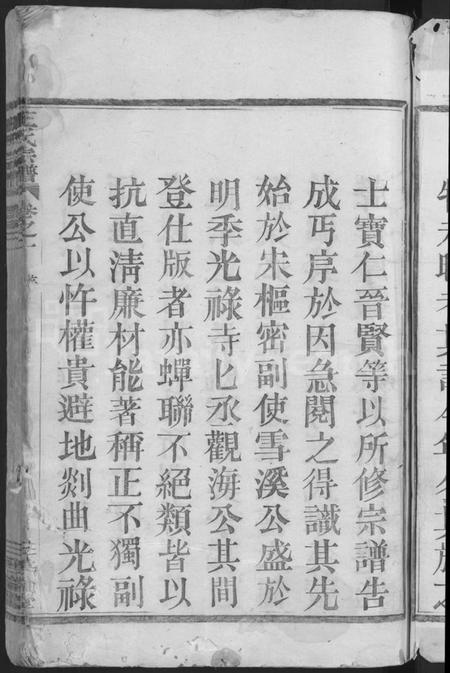 士寶仁晉賢等以所修宗譜告
成丐序於因急閱之得識其先
始於宋樞密副使雪溪公盛於
明季光祿寺匕丞觀海公其間
登仕版者亦蟬聯不絕類皆以
抗直清廉材能著稱正不獨副
使公以忤權貴避地剡曲光祿
王氏宗譜 卷之一